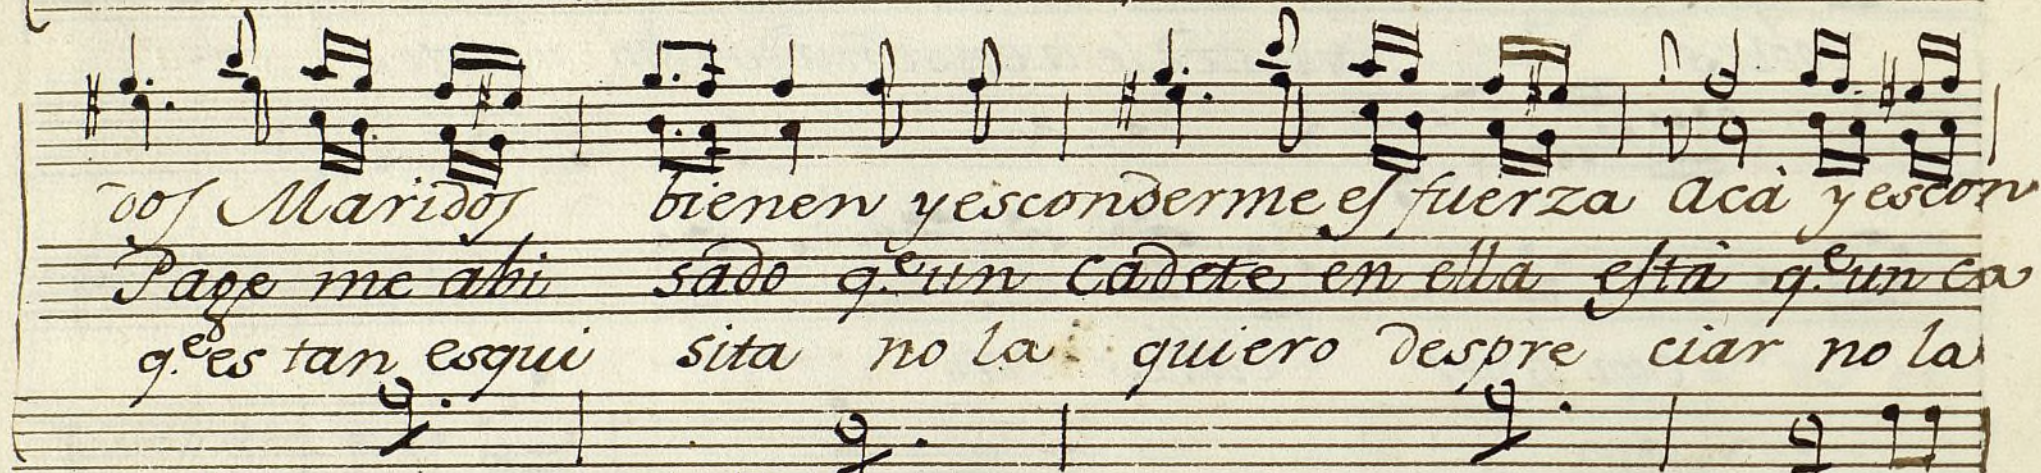 dos Maridos bienen y esconderme es fuerza acà y escon
Page me abi sado q.e un cadete en ella està q.e un ca
q.e es tan esqui sita no la quiero despre ciar no la